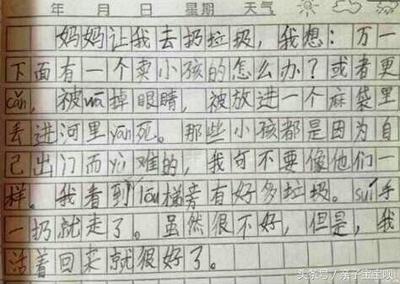 年 月 日 星期 天气
妈妈让我去扔垃圾，我想：万一
下面有一个卖小孩的怎么办？或者更
cǎn，被wā掉眼睛，被放进一个麻袋里
丢进河里yān死。那些小孩都是因为自
己出门而yù难的，我可不要像他们一
样。我看到lóu梯旁有好多垃圾。suí手
一扔就走了。虽然很不好，但是，我
活着回来就很好了。
头条号／亲子宝宝呗